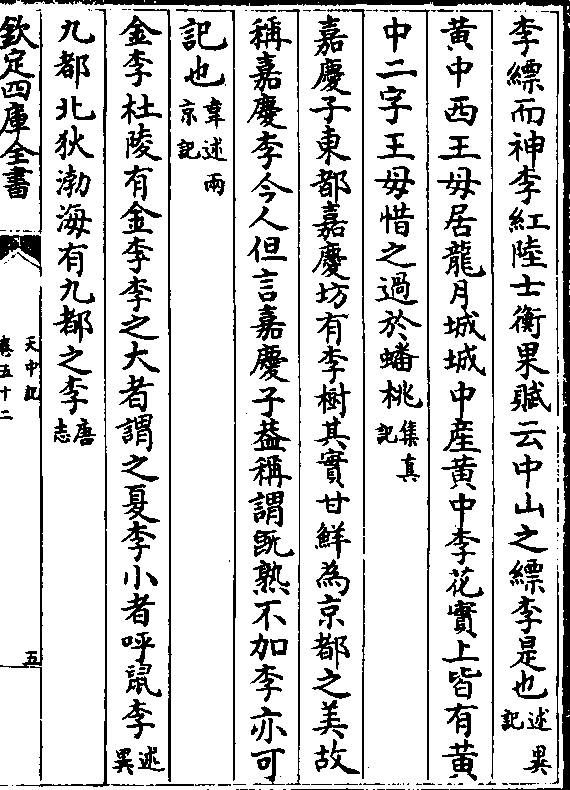 李縹而神李紅陸士衡果賦云中山之縹李是也述異記
黄中西王母居龍月城城中産黄中李花實上皆有黄
中二字王母惜之過於蟠桃集真記
嘉慶子東都嘉慶坊有李樹其實甘鮮為京都之美故
稱嘉慶李今人但言嘉慶子葢稱謂既熟不加李亦可
記也韋述兩京記
金李杜陵有金李李之大者謂之夏李小者呼鼠李述異
九都北狄渤海有九都之李唐志
欽定四庫全書
天中記
卷五十二
五